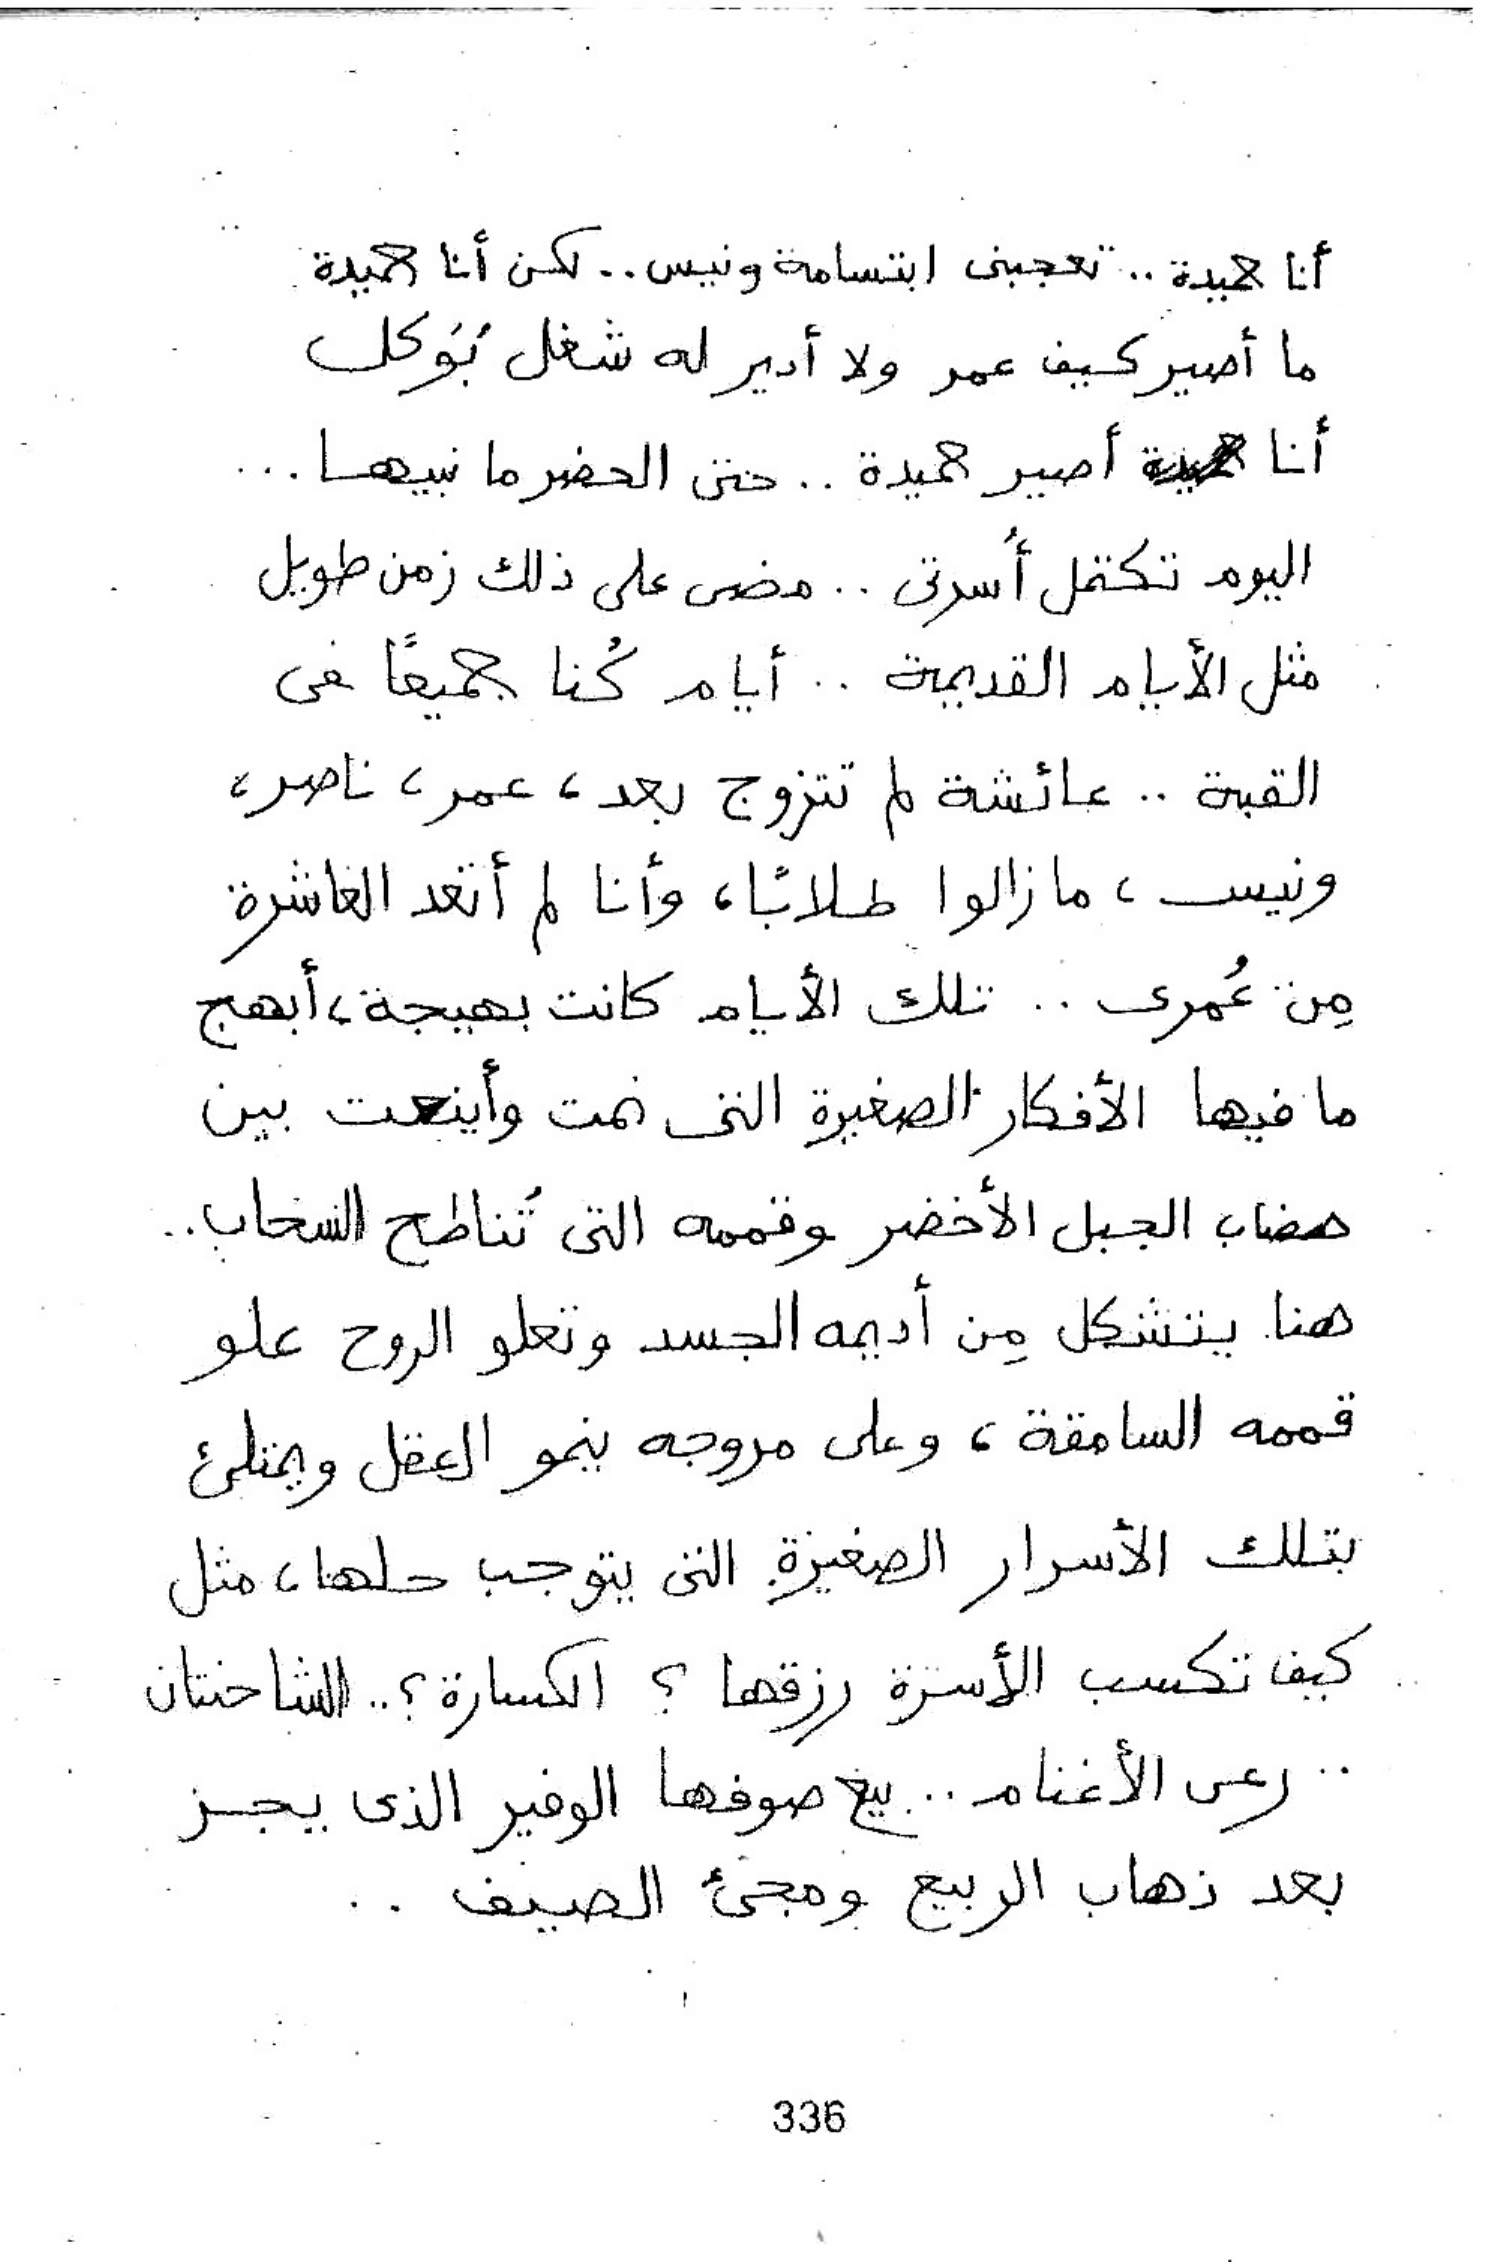 أنا حميدة .. تعجبنى ابتسامة ونيس .. لكن أنا حميدة
ما أصير كيف عمر ولا أدير له شغل بُوكل
أنا حميدة أصير حميدة .. حتى الحضر ما نبيها ...
اليوم تكتمل أُسرتى .. مضى على ذلك زمن طويل
مثل الأيام القديمة .. أيام كُنا جميعًا فى
القبة .. عائشة لم تتزوج بعد ، عمر ، ناصر ،
ونيس ، ما زالوا طلابًا ، وأنا لم أتعد العاشرة
مِن عُمرى .. تلك الأيام كانت بهيجة ، أبهج
ما فيها الأفكار الصغيرة التى نمت وأينعت بين
هضاب الجبل الأخضر وقممه التى تُناطح السحاب ..
هنا يتشكل مِن أديمه الجسد وتعلو الروح علو
قممه السامقة ، وعلى مروجه ينمو العقل ويمتلئ
بتلك الأسرار الصغيرة التى يتوجب حلها ، مثل
كيف تكسب الأسرة رزقها ؟ الكسارة ؟ .. الشاحنتان
.. رعى الأغنام .. بيع صوفها الوفير الذى يجز
بعد ذهاب الربيع ومجئ الصيف ..
336